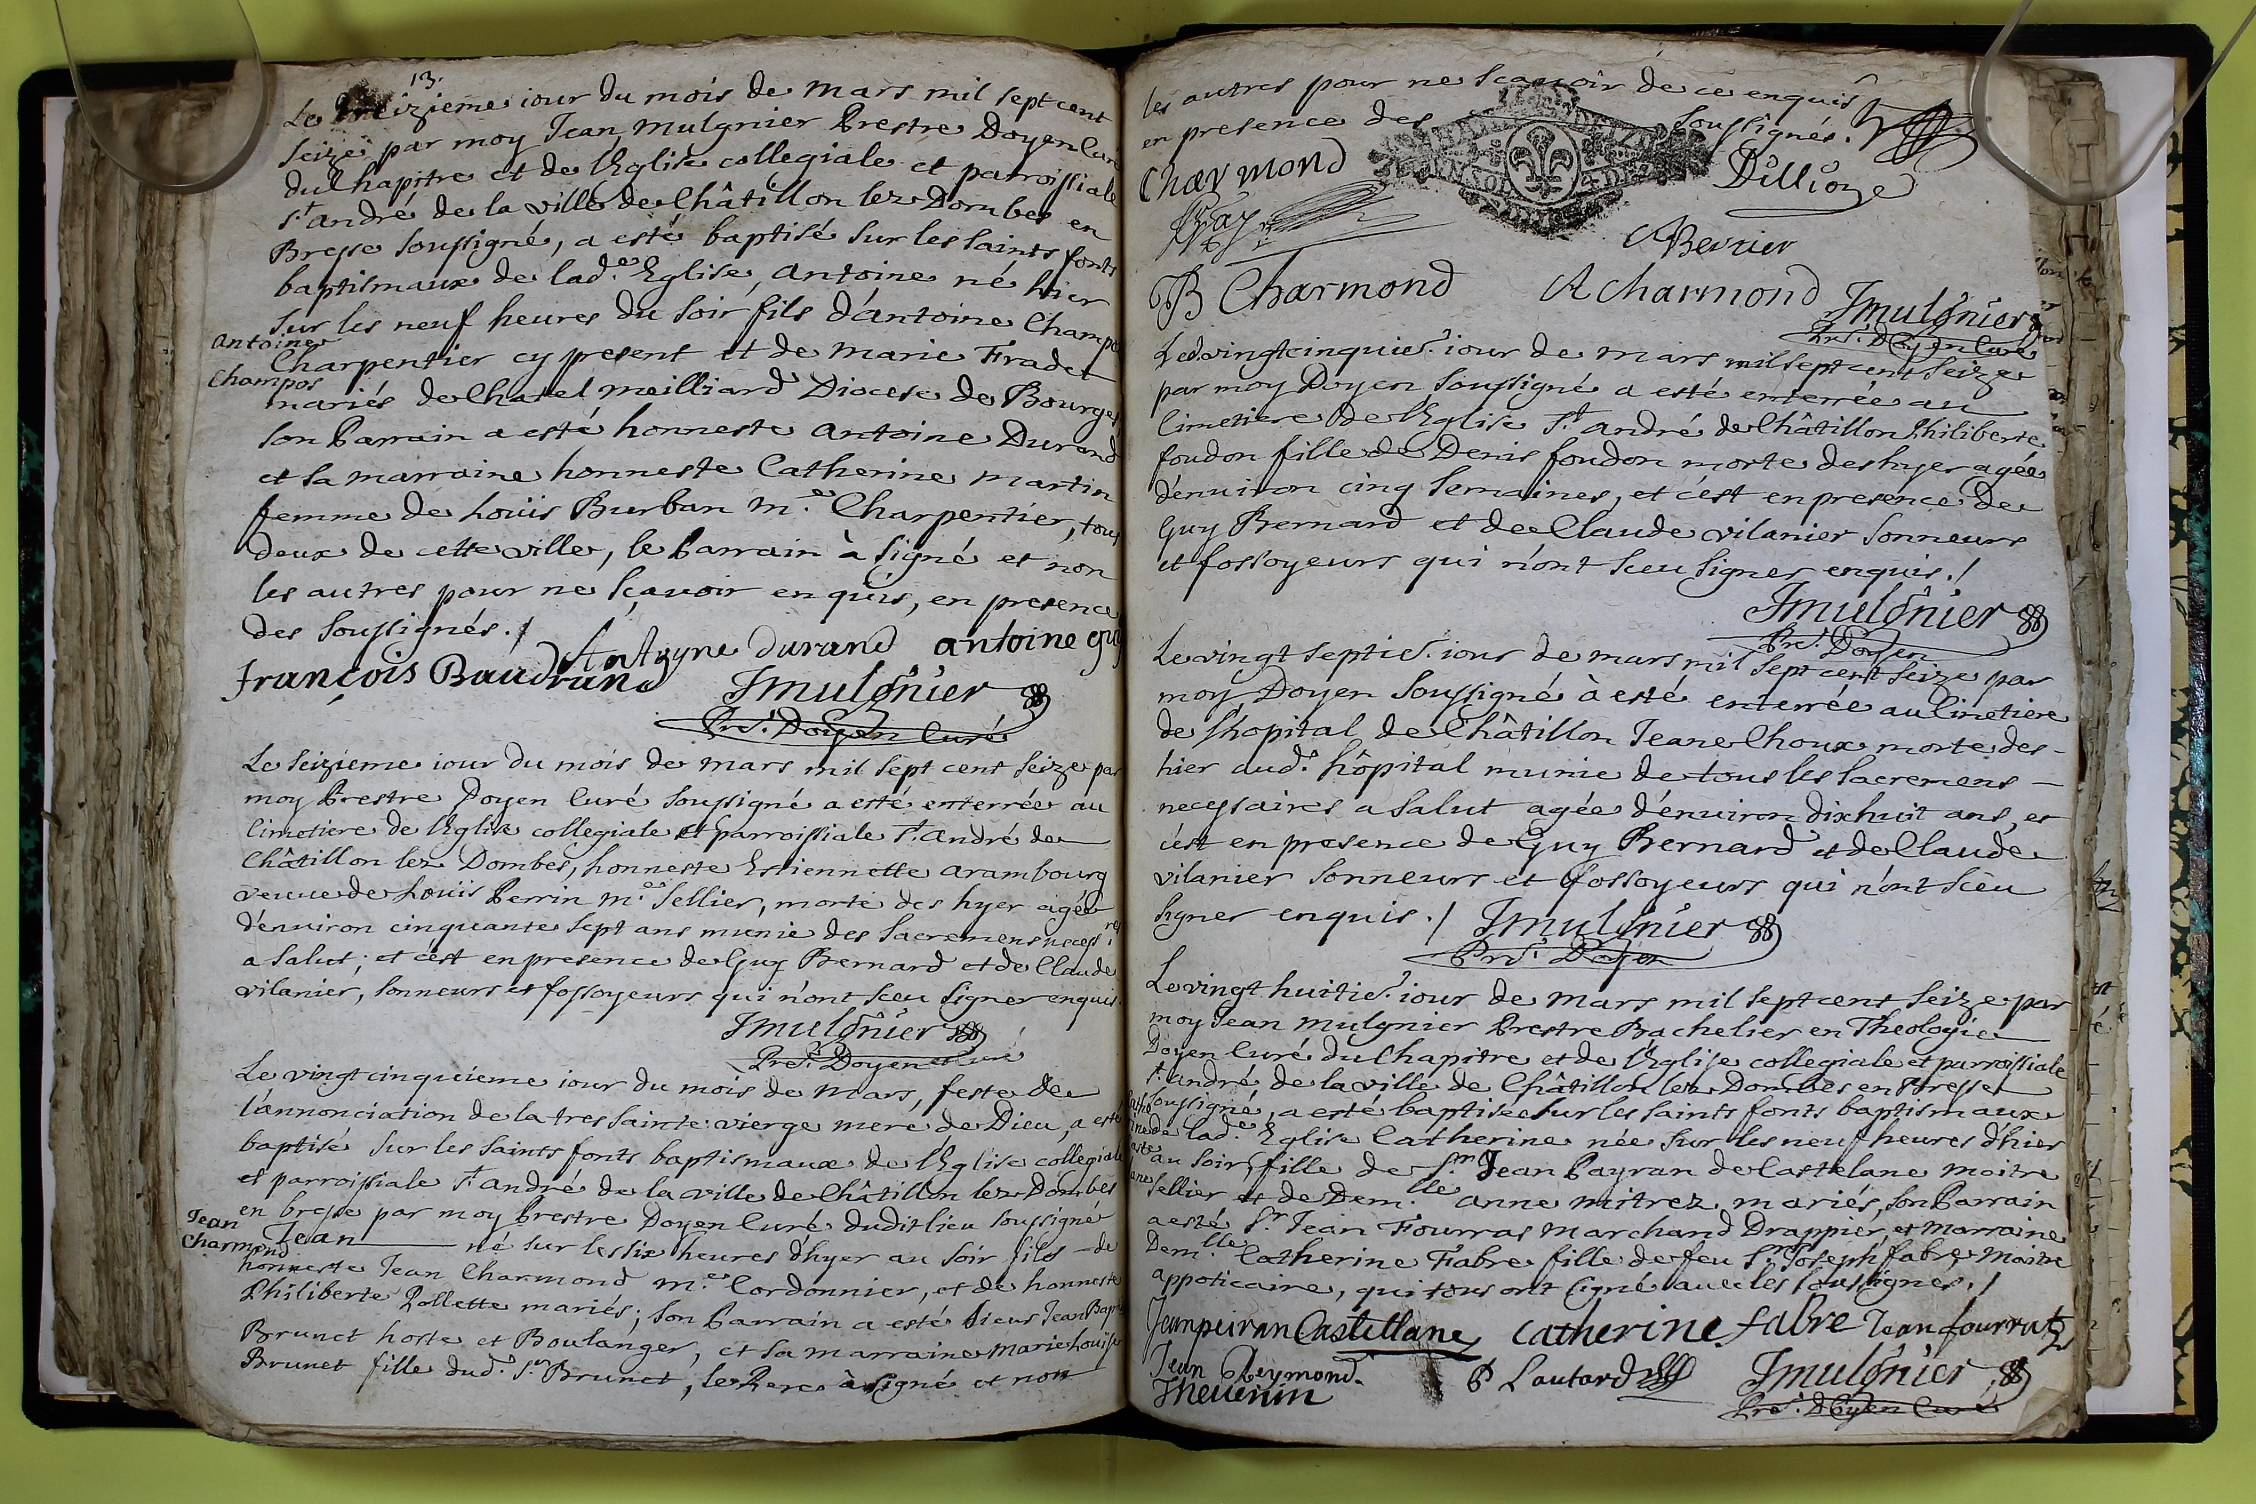 13.
Le treizieme iour du mois de mars mil sept cent
seize par moy Jean Mulgnier Prestre Doyen Curé
du Chapitre et de l'Eglise collegiale et parroissiale
St. andré de la ville de Châtillon lez Dombes en
Bresse soussigné, a esté baptisé sur les saints fonts
baptismaux de lad.e Eglise, antoine né hier
sur les neuf heures du soir fils d'antoine Champo
Antoine
Champos
Charpentier cy present et de marie Fradet
mariés de Chatel meilliard Diocese de Bourges
son Parrain a esté honneste antoine Durand
et sa marraine honneste Catherine martin
femme de Loüis Burban m.e Charpentier, tous
deux de cette ville, le Parrain à signé et non
les autres pour ne sçavoir enquis, en presence
des soussignés ./
Antoyne durand antoine
François Baudrand JMulgnier
Pre. Doyen Curé
Le seizieme iour du mois de mars mil sept cent seize par
moy Prestre Doyen Curé soussigné a esté enterrée au
Cimetiere de l'Eglise collegiale et parroissiale St. andré de
Châtillon lez Dombes, honneste Estiennette arambourg
veuue de Louis Perrin m.e Sellier, morte des hyer agée
d'enuiron cinquante sept ans munie des sacremens necess.res
a salut; et c'est en presence de Guy Bernard et de Claude
vilanier, sonneurs et fossoyeurs qui n'ont sceu signer enquis.
JMulgnier
Pre. Doyen et curé
Le vingt cinquieme iour du mois de mars, feste de
l'annonciation de la tres sainte vierge mere de Dieu, a esté
baptisé sur les saints fonts baptismaux de l'Eglise collegiale
et parroissiale St. andré de la ville de Châtillon lez Dombes
en bresse par moy Prestre Doyen Curé dudit lieu soussigné
Jean
Charmond
Jean né sur les six heures d'hyer au soir fils de
honneste Jean Charmond m.e Cordonnier, et de honneste
Philiberte Pollette mariés; son Parrain a esté sieur Jean Bapt
Brunet hoste et Boulanger, et sa marraine marie Louise
Brunet fille dud. Sr. Brunet, le Pere à signé et non
les autres pour ne sçauoir de ce enquis
en presence des soussignés.
Charmond Dillioze
Bevrier
B Charmond A charmond JMulgnier
Pre. Doyen Curé
Led. vingtcinquie. iour de mars mil sept cent seize
par moy Doyen soussigné a esté enterrée au
Cimetiere de l'Eglise St. andré de Châtillon Philiberte
foudon fille de Denis foudon morte des hyer agée
d'enuiron cinq semaines, et c'est en presence de
Guy Bernard et de Claude vilanier sonneurs
et fossoyeurs qui n'ont sceu signer enquis ./
JMulgnier
Pre. Doyen
Le vingt septie. iour de mars mil sept cent seize par
moy Doyen soussigné à esté enterrée au Cimetiere
de l'hopital de Châtillon Jeane Choux morte des
hier aud. hôpital munie de tous les sacremens
necessaires a salut agée d'enuiron dixhuit ans, et
c'est en presence de Guy Bernard et de Claude
vilanier sonneurs et fossoyeurs qui n'ont sceu
signer enquis ./ JMulgnier
Pre. Doyen
Le vingt huitie. iour de mars mil sept cent seize par
moy Jean Mulgnier Prestre Bachelier en Theologie
Doyen Curé du Chapitre et de l'Eglise collegiale et parroissiale
St. andré de la ville de Châtillon lez Dombes en Bresse
soussigné, a esté baptisée sur les saints fonts baptismaux
de lad.e Eglise Catherine née sur les neuf heures d'hier
au soir, fille de Sr. Jean Payran de Castelane maitre
Sellier et de Dem.lle anne mitrez mariés, son Parrain
a esté Sr. Jean Fourras marchand Drappier, et marraine
Dem.lle Catherine Fabre fille de feu Sr. Joseph fabre maitre
appoticaire, qui tous ont signé auec les soussignes ./
Jean peiran Castellane Catherine fabre Jean fourrat
Jean Reymond. P Lautard JMulgnier
Theuenin Pre. Doyen Curé